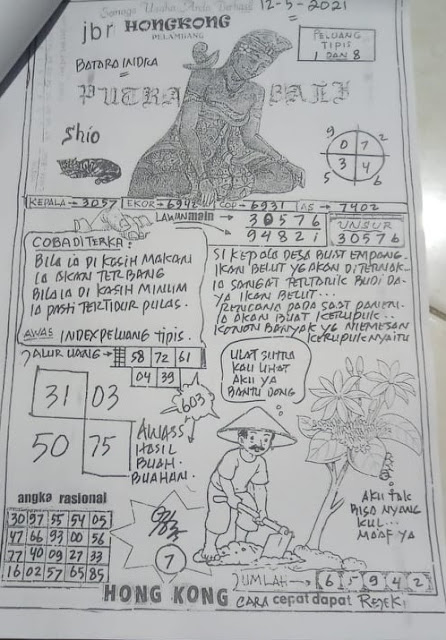 Semoga Usaha Anda Berhasil 12-5-2021
jbr HONGKONG
PELAMBANG
PELUANG
TIPIS
1 DAN 8
BATARA INDRA
PUTRA BALI
Shio
9 2
0 7
3 4
5 6
KEPALA → 3057 EKOR → 6942 COP → 6931 AS → 7402
LAWAN main → 30576
94821
UNSUR
30576
COBA DI TERKA:
BILA IA DI KASIH MAKAN
IA AKAN TERBANG
BILA IA DI KASIH MINUM
IA PASTI TERTIDUR PULAS.
AWAS INDEX PELUANG TIPIS.
SI KEPALA DESA BUAT EMPANG.
IKAN BELUT YG AKAN DI TERNAK..
IA SANGAT TERTARIK BUDI DA-
YA IKAN BELUT...
RENCANA PADA SAAT PANEN..
IA AKAN BUAT KERUPUK..
KONON BANYAK YG MEMESAN
KERUPUKNYA ITU
JALUR UANG → 58 72 61
04 39
603
31 03
50 75
AWASS
HASIL
BUAH-
BUAHAN.
ULAT SUTRA
KAU LIHAT
AKU YA
BANTU DONG
AKU TAK
BISA NYANG
KUL...
MAAF YA
angka rasional
30 97 55 54 05
47 66 93 00 56
77 40 09 27 33
16 02 57 65 85
7
JUMLAH → 6 5 9 4 2
HONG KONG CARA cepat dapat REJEKI